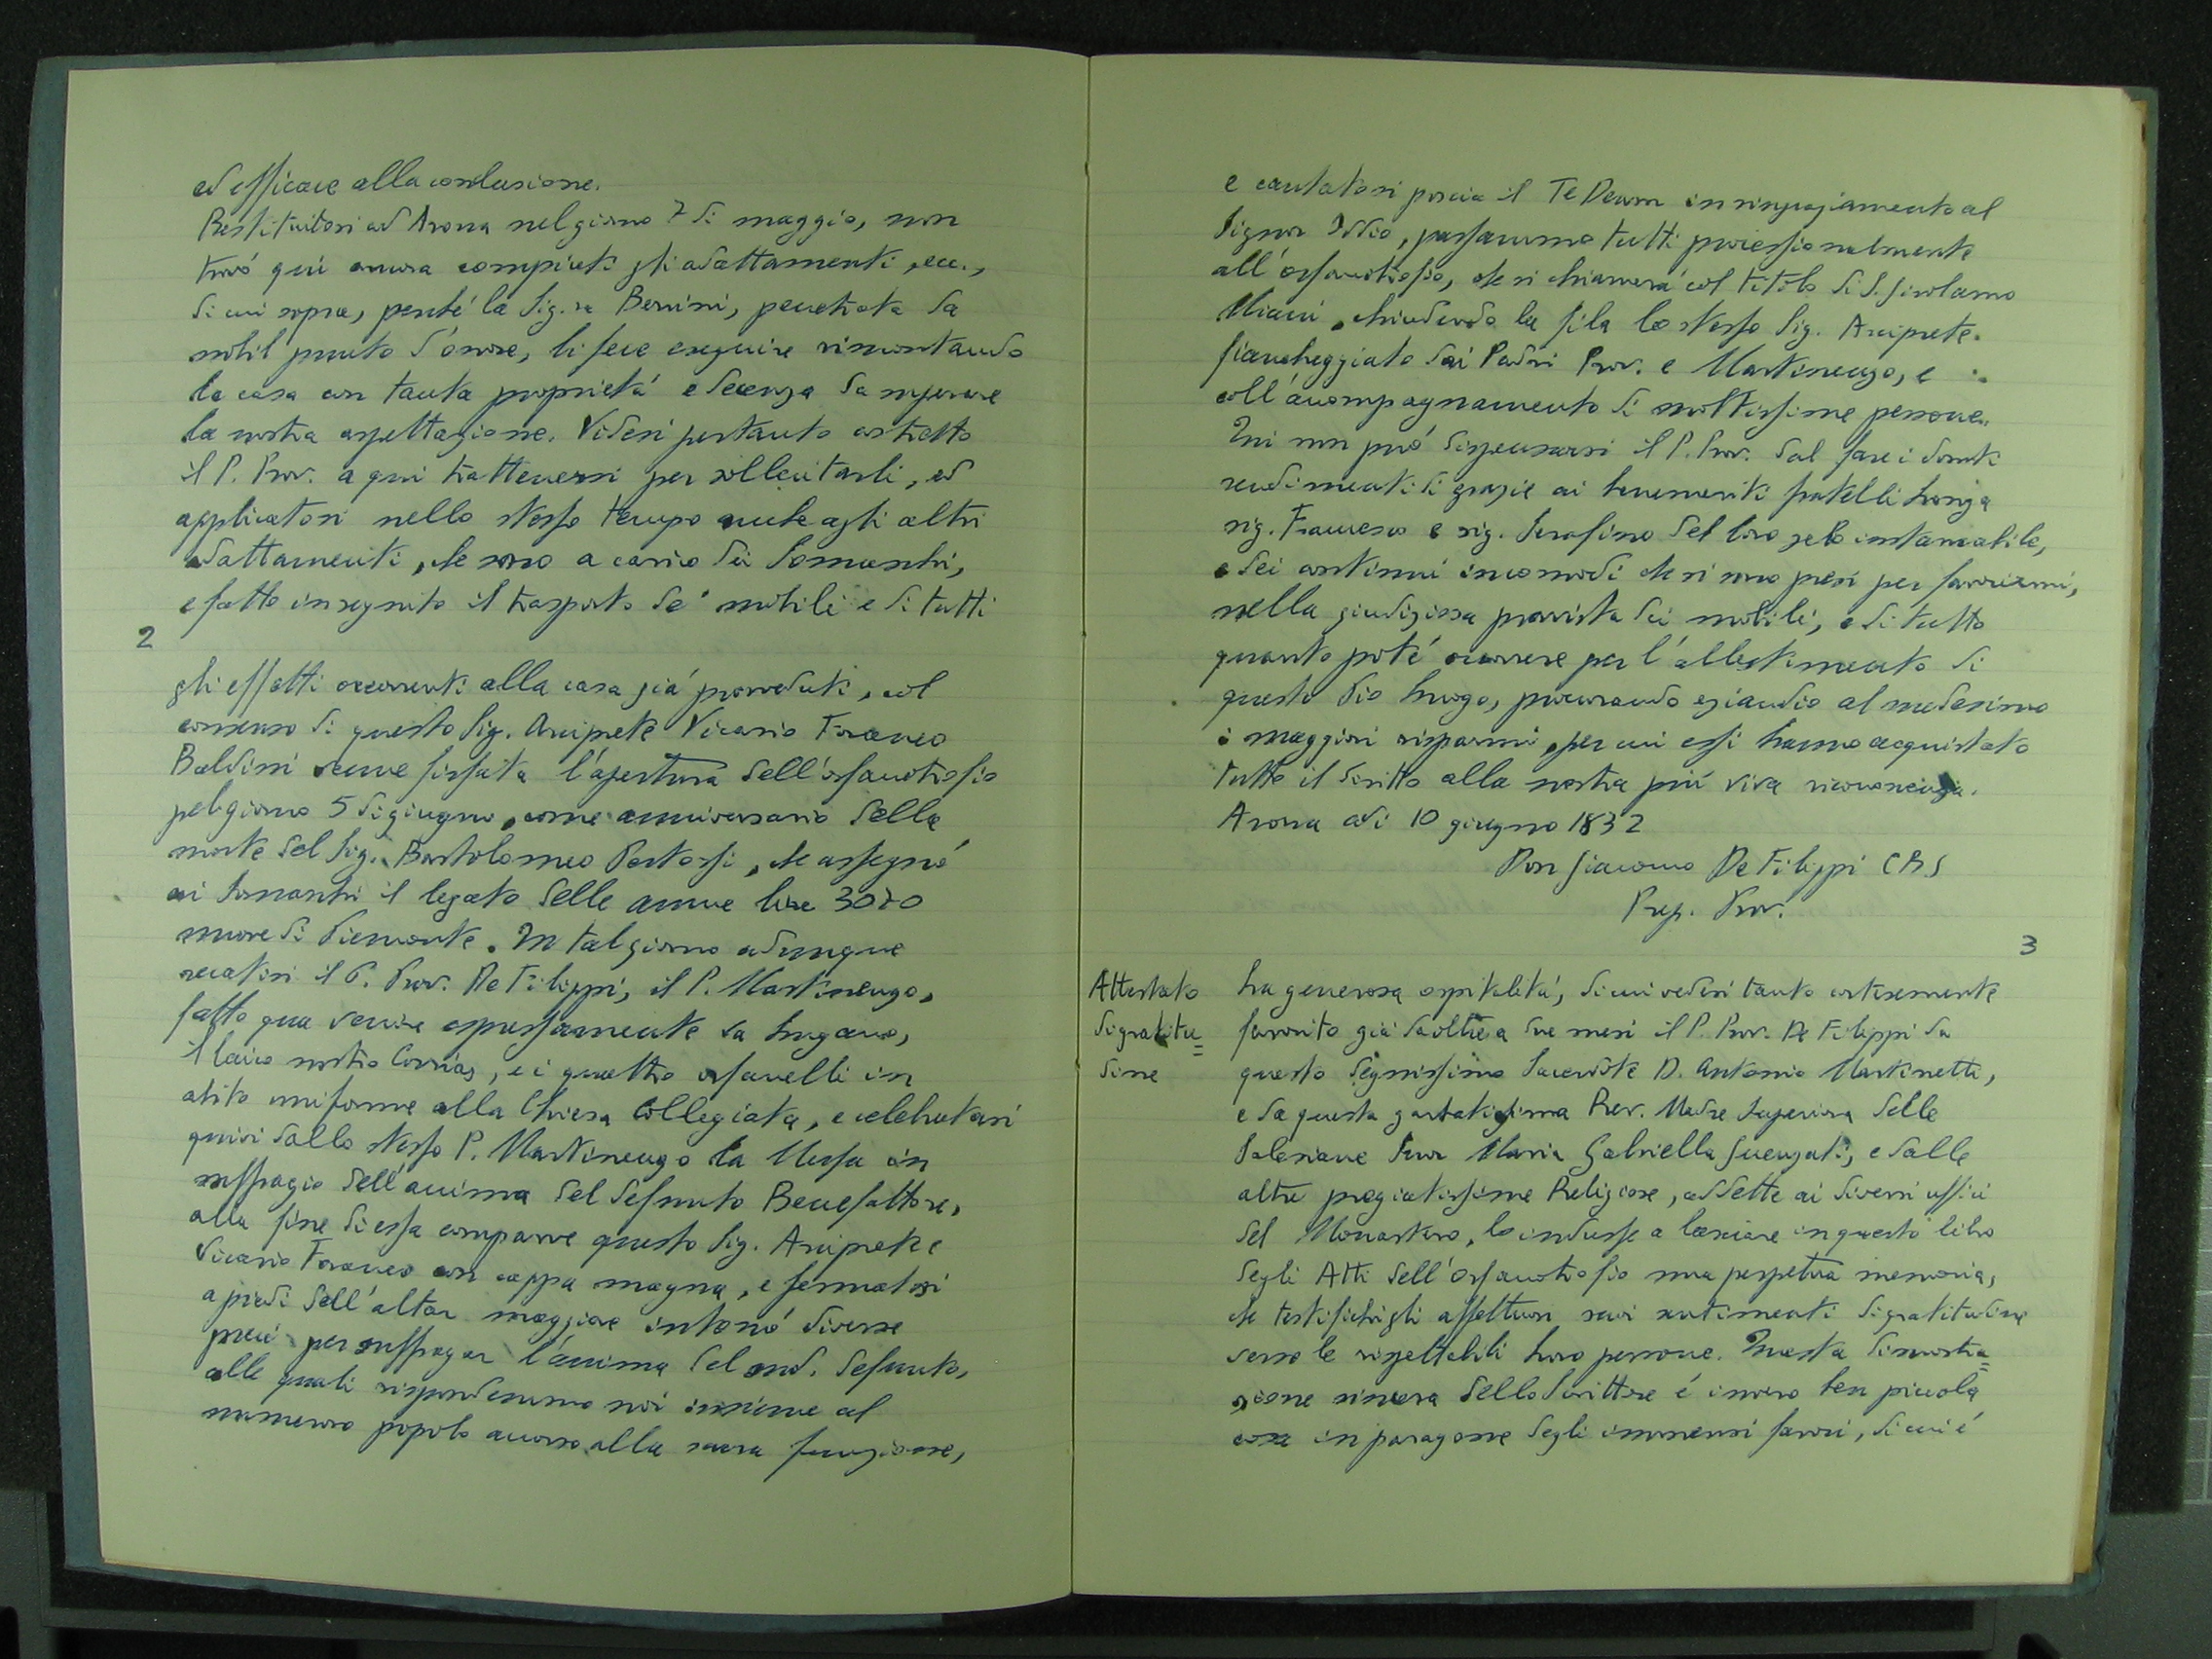 ed efficace alla conclusione.
Restituitosi ad Arona nel giorno 7 di maggio, non
trovó qui ancora compiuti gli adattamenti, ecc.,
di cui sopra, perché la Sig.ra Bersini, penetrata da
nobil punto d'onore, li fece eseguire rimontando
la casa con tanta proprietá e decenza da superare
la nostra aspettazione. Videsi pertanto costretto
il P. Prov. a qui trattenersi per sollecitarli, ed
applicatosi nello stesso tempo anche agli altri
adattamenti, che sono a carico dei Somaschi,
e fatto in seguito il trasporto de' mobili e di tutti
2
gli effetti occorrenti alla casa giá proveduti, col
consenso di questo Sig. Arciprete Vicario Foraneo
Baldini venne fissata l'apertura dell'orfanotrofio
pel giorno 5 di giugno, come anniversario della
morte del Sig. Bartolomeo Pertossi, che assegnó
ai Somaschi il legato delle annue lire 3020
nuove di Piemonte. In tal giorno adunque
recatisi il P. Prov. De Filippi, il P. Martinengo,
fatto qua venire espressamente da Lugano,
il laico nostro Corrias, e i quattro orfanelli in
abito uniforme alla Chiesa Collegiata, e celebratasi
quivi dallo stesso P. Martinengo la Messa in
suffragio dell'anima del defunto Benefattore,
alla fine di essa comparve questo Sig. Arciprete
Vicario Foraneo con cappa magna, e fermatosi
a piedi dell'altar maggiore intonó diverse
preci per suffragar l'anima del sud. defunto,
alle quali rispondemmo noi insieme al
numeroso popolo accorso alla sacra funzione,
e cantatosi poscia il Te Deum in ringraziamento al
Signor Iddio, passammo tutti processionalmente
all'orfanotrofio, che si chiamerá col titolo di S. Girolamo
Miani, chiudendo la fila lo stesso Sig. Arciprete
fiancheggiato dai Padri Prov. e Martinengo, e
coll'accompagnamento di moltissime persone.
Qui non puó dispensarsi il P. Prov. dal fare i dovuti
rendimenti di grazie ai benemeriti fratelli
sig. Francesco e sig. Serafino del loro zelo instancabile,
e dei continui incomodi che si sono presi per favorirmi,
nella giudiziosa provvista dei mobili, e di tutto
quanto poté occorrere per l'allestimento di
questo Pio luogo, procurando eziandio al medesimo
i maggiori risparmi, per cui essi hanno acquistato
tutto il diritto alla nostra piú viva riconoscenza.
Arona adi 10 giugno 1832
Don Giacomo De Filippi CRS
Prep. Prov.
3
Attestato
di gratitu=
dine
La generosa ospitalitá, di cui vedesi tanto cortesemente
favorito giá da oltre a due mesi il P. Prov. De Filippi da
questo degnissimo Sacerdote D. Antonio Martinetti,
e da questa garbatissima Rev. Madre Superiora delle
Salesiane Suor Maria Gabriella Guenzati, e dalle
altre pregiatissime Religiose, addette ai diversi uffici
del Monastero, lo indusse a lasciare in questo libro
degli Atti dell'Orfanotrofio una perpetua memoria,
che testifichi gli affettuosi suoi sentimenti di gratitudine
verso le rispettabili loro persone. Questa dimostra=
zione sincera dello Scrittore é invero ben piccola
cosa in paragone degli immensi favori, di cui é